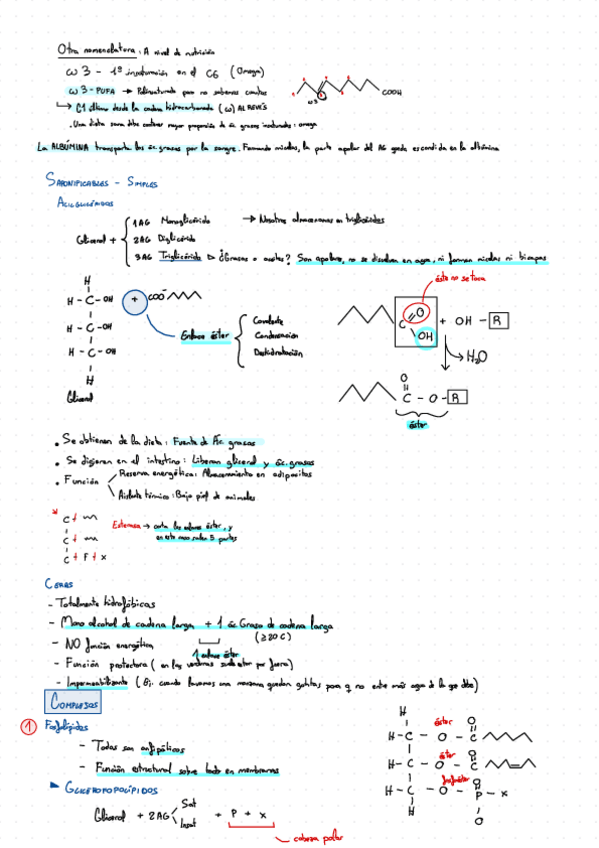 Otra nomenclatura: A nivel de nutrición
ω 3 - 1ª insaturación en el C6 (Omega)
ω 3 - PUFA → Poliinsaturado pero no sabemos cuantos
↳ C1 último desde la cadena hidrocarbonada (ω) AL REVÉS
COOH
ω3
. Una dieta sana debe contener mayor proporción de ác. grasos insaturados: omega
La ALBÚMINA transporta los ác. grasos por la sangre. Formando micelas, la parte apolar del AG queda escondida en la albúmina
SAPONIFICABLES - SIMPLES
ACILGLICÉRIDOS
Glicerol +
1AG Monoglicérido → Nosotros almacenamos en triglicéridos
2AG Diglicérido
3AG Triglicérido ▷ ¿Grasas o aceites? Son apolares, no se disuelven en agua, ni forman micelas ni bicapas
H
H - C - OH
H - C - OH
H - C - OH
H
Glicerol
+ COO⁻
Enlace éster
Covalente
Condensación
Deshidratación
éste no se toca
C O OH + OH - R
H₂O
O
C - O - R
éster
• Se obtienen de la dieta: Fuente de Ác. grasos
• Se digieren en el intestino: Liberan glicerol y ác. grasos
• Función
Reserva energética: Almacenamiento en adipocitos
Aislante térmico: Bajo piel de animales
*
C
C
C P x
Esterasa → corta los enlaces éster, y
en este caso salen 5 partes
CERAS
- Totalmente hidrofóbicas
- Mono alcohol de cadena larga + 1 ác. Graso de cadena larga
(≥20 C)
1 enlace éster
- NO función energética
- Función protectora (en las verduras suele estar por fuera)
- Impermeabilizante (Ej: cuando lavamos una manzana quedan gotitas para q no entre más agua de la que debe)
COMPLEJOS
1 Fosfolípidos
- Todos son anfipáticos
- Función estructural sobre todo en membranas
▶ GLICEROFOSFOLÍPIDOS
Glicerol + 2AG
Sat
Insat
+ P + x
cabeza polar
H
éster O
H - C - O - C
éster O
H - C - O - C
O
H - C - O - P - x
H
O